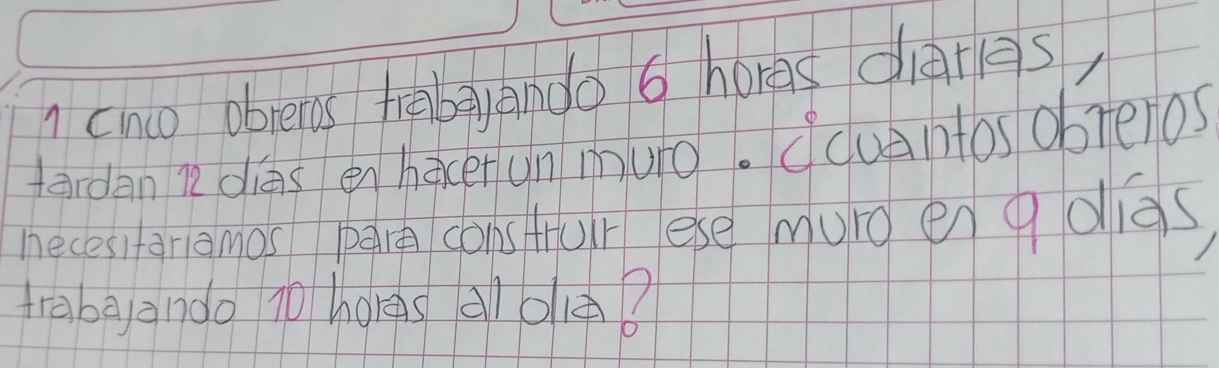 1 cinco obreros trabajando 6 horas diarias,
tardan 12 días en hacer un muro. ¿cuantos obreros
necesitariamos para construir ese muro en 9 días,
trabajando 10 horas al dia?